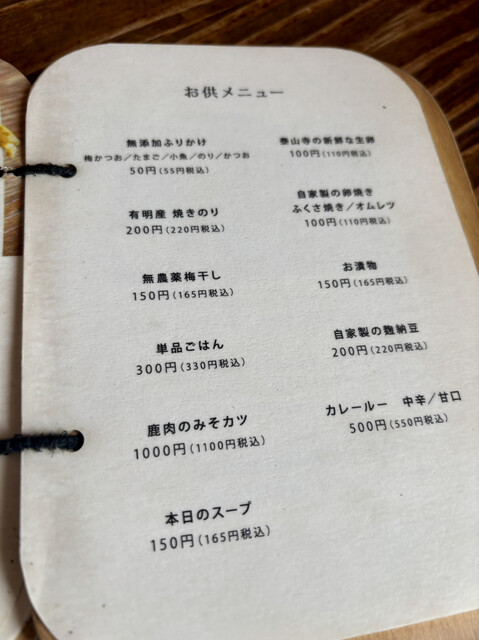 お供メニュー
無添加ふりかけ
梅かつお/たまご/小魚/のり/かつお
50円(55円税込)
有明産 焼きのり
200円(220円税込)
無農薬梅干し
150円(165円税込)
単品ごはん
300円(330円税込)
鹿肉のみそカツ
1000円(1100円税込)
本日のスープ
150円(165円税込)
泰山寺の新鮮な生卵
100円(110円税込)
自家製の卵焼き
ふくさ焼き/オムレツ
100円(110円税込)
お漬物
150円(165円税込)
自家製の麹納豆
200円(220円税込)
カレールー 中辛/甘口
500円(550円税込)